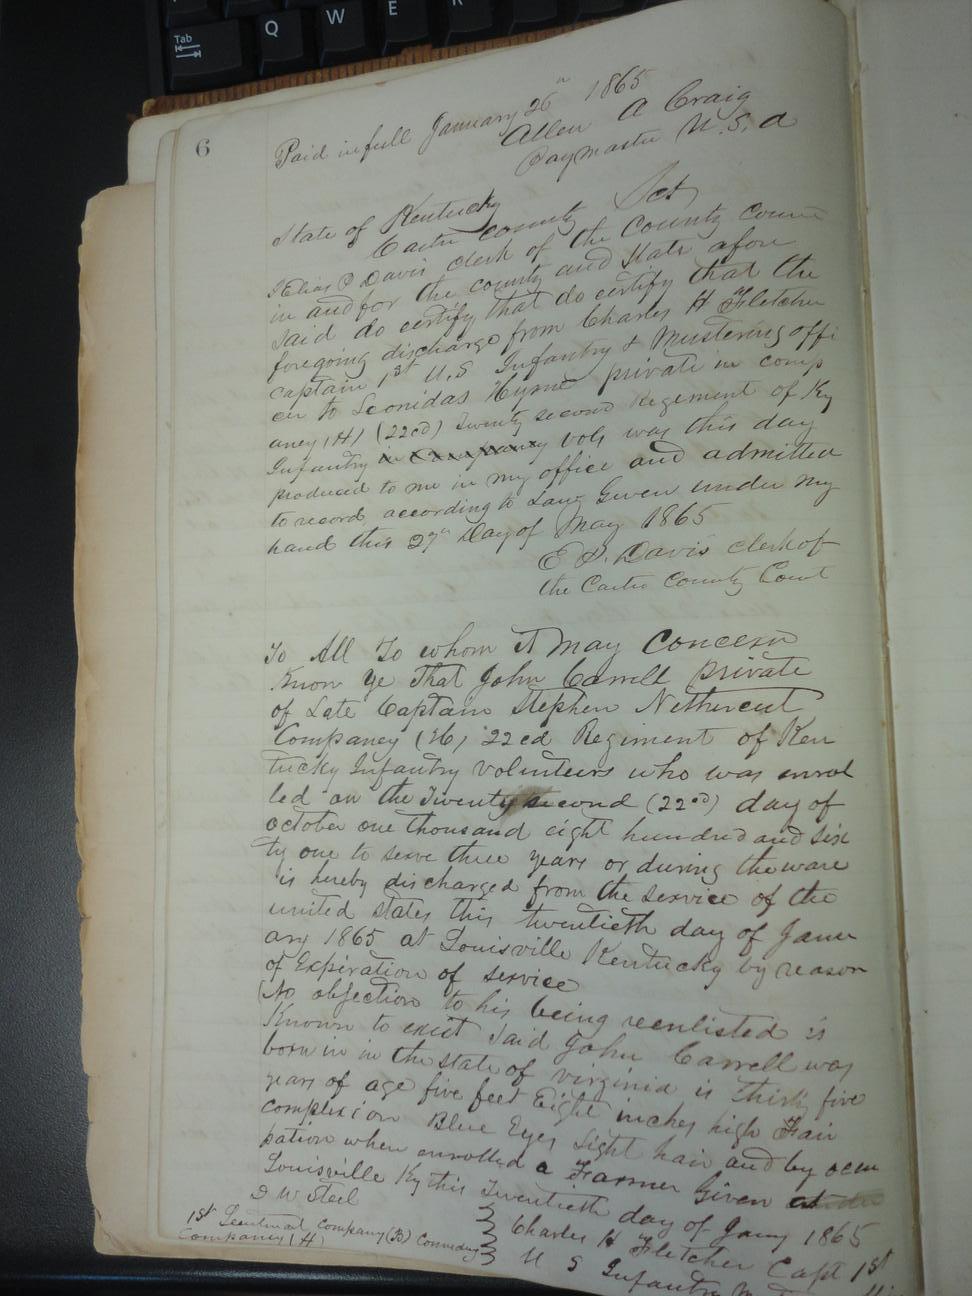 Tab
Q
W
E
R
6
Paid in full January 26th 1865
Allen A Craig
Paymaster U. S. A
State of Kentucky
Carter County Sct
I Elias P Davis clerk of the County Court
in and for the county and State afore
said do certify that do certify that the
foregoing discharge from Charles H Fletcher
captain 1st U.S Infantry & Mustering offi
cer to Leonidas private in comp
aney (H) (22cd) Twenty second Regement of Ky
Infantry in Company vols was this day
produced to me in my office and admitted
to record according to Law Given under my
hand this 27th Day of May 1865
E P. Davis clerk of
the Carter County Court
To All To whom it May Concern
Know ye That John Carrell private
of Late Captain Stephen Nethercut
Companey (H) 22cd Regiment of Ken
tucky Infantry volunteers who was enrol
led on the Twenty second (22nd) day of
october one thousand eight hundred and six
ty one to serve three years or during the ware
is hereby discharged from the service of the
united states this twentieth day of Janu
ary 1865 at Louisville Kentucky by reason
of Expiration of service
(No objection to his being reenlisted is
Known to exist Said John Carrell was
born in in the state of virginia is Thirty five
years of age five feet Eight inches high Fair
complexion Blue Eyes Light hair and by occu
pation when enrolled a Farmer Given at
Louisville Ky this Twentieth day of Jany 1865
D W Steel
1st Leautenat Company (B) Comndng
Company (H)
Charles H Fletcher Capt 1st
U S Infantry